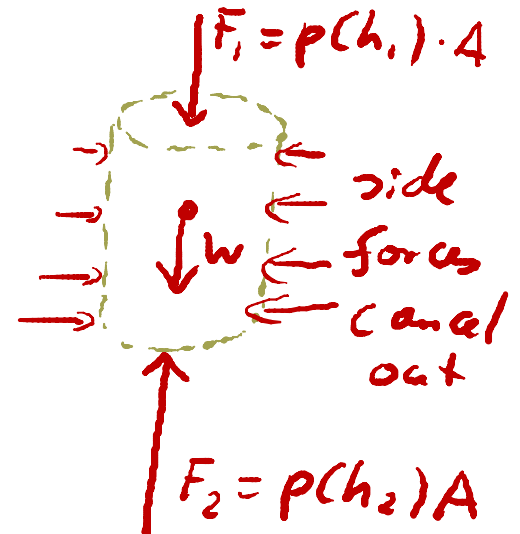 F₁ = p(h₁) · A
side
W
forces
cancel
out
F₂ = p(h₂) A